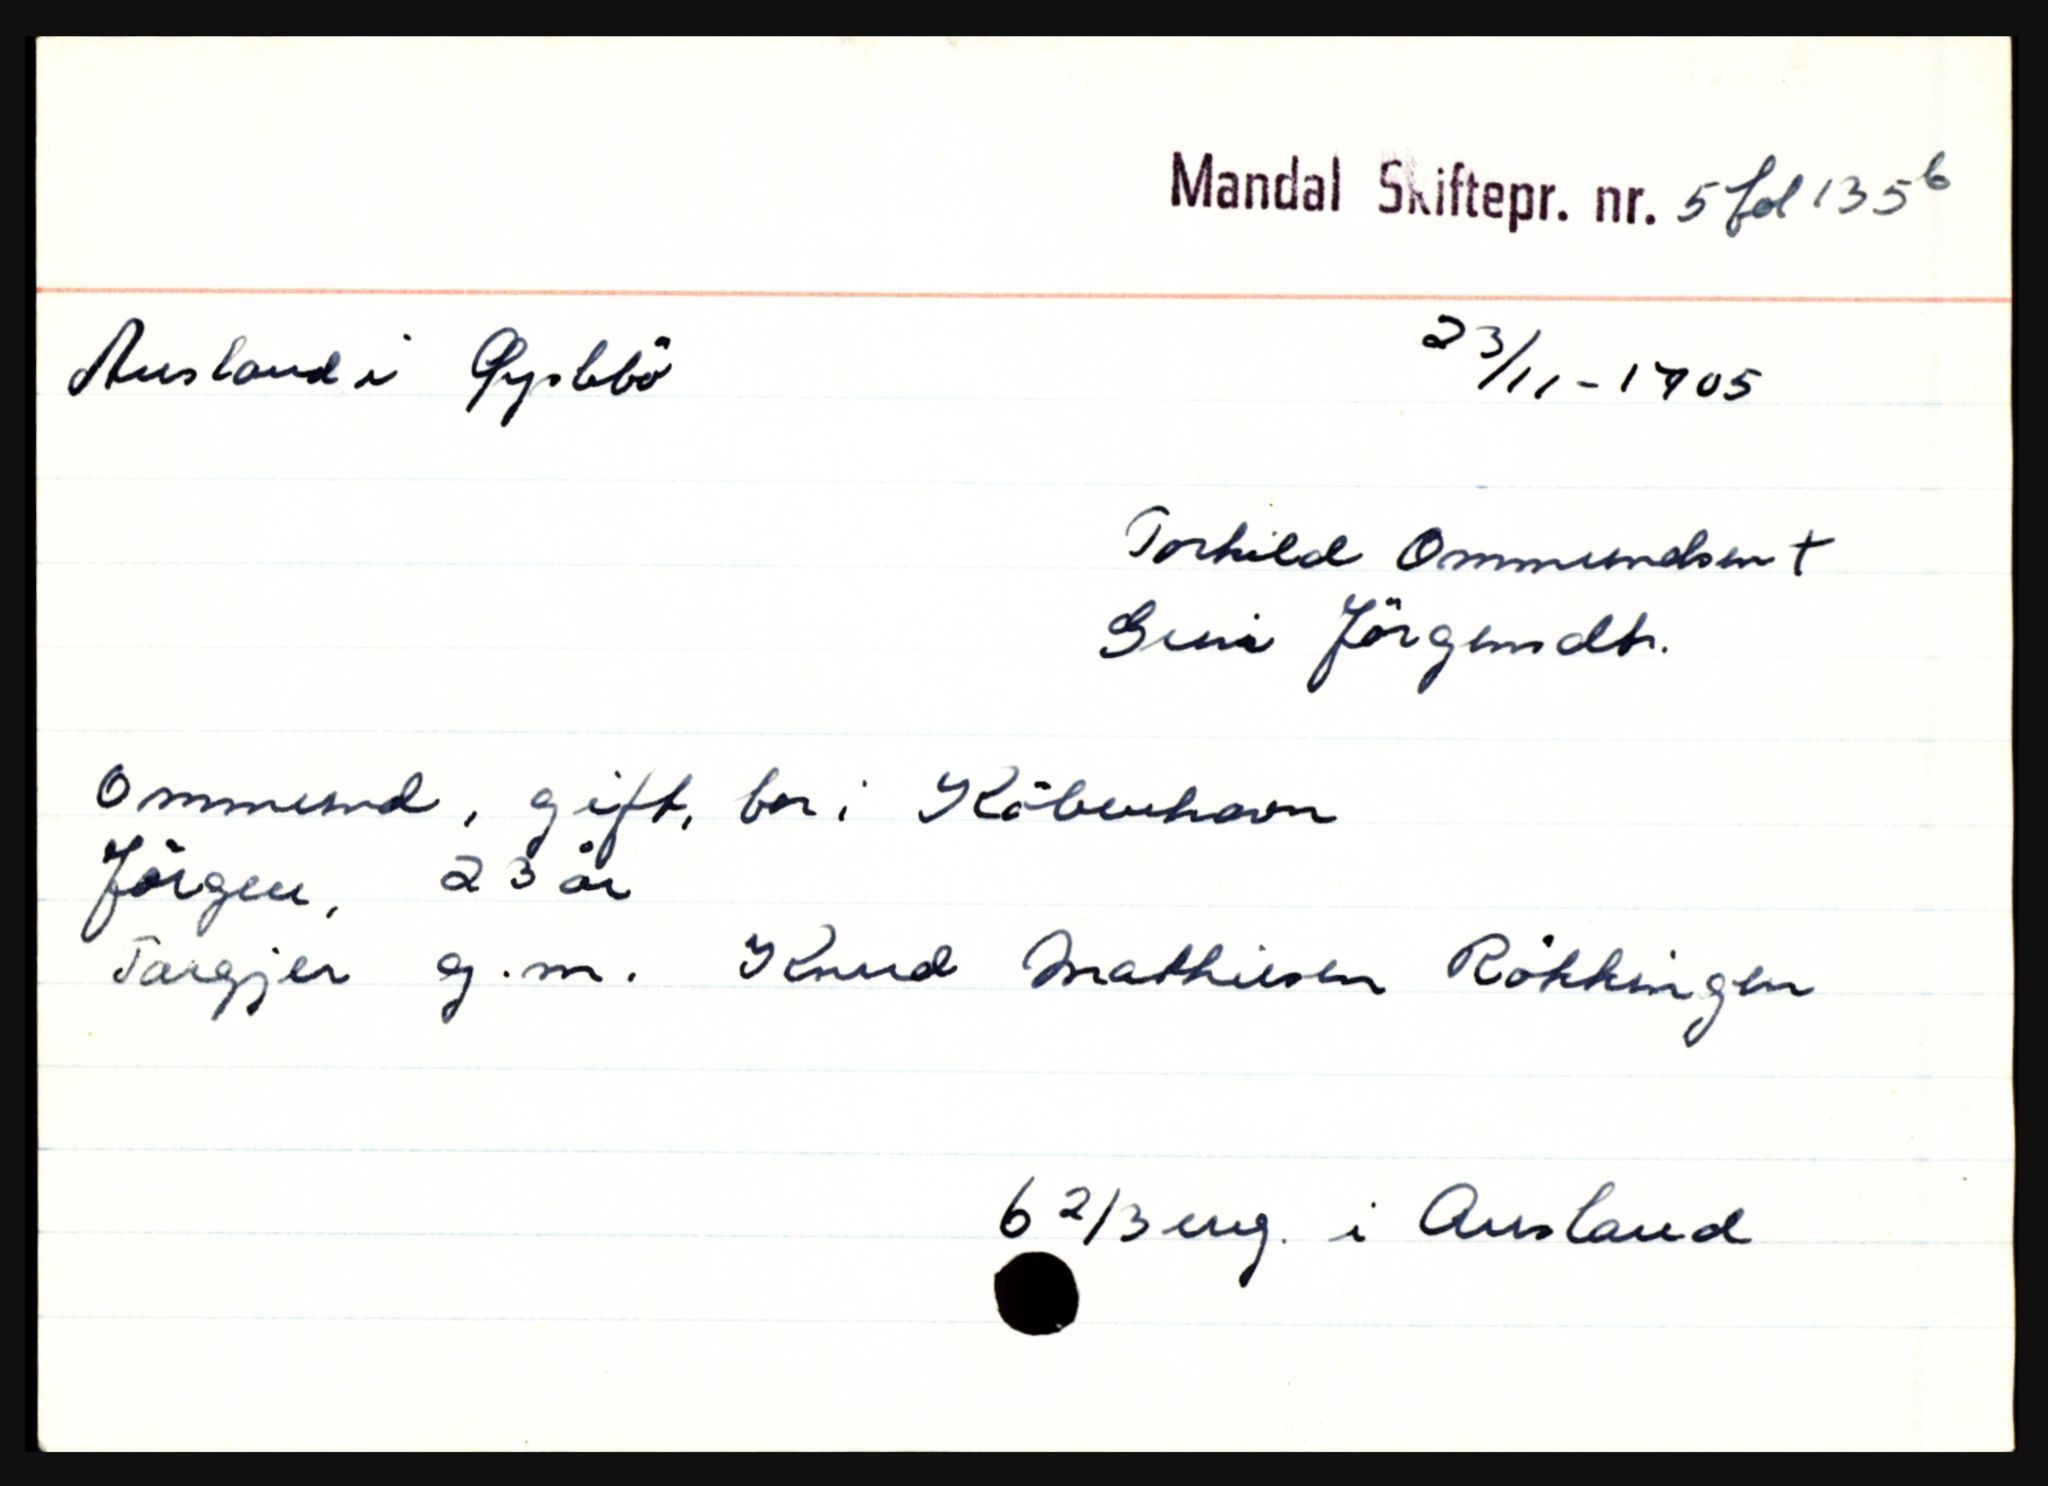 Mandal Skiftepr. nr. 5 fol 135b
Ausland i Øyslebö 23/11-1705
Torkild Ommundsen +
Guri Jörgensdtr.
Ommund, gift, bor i Köbenhavn
Jörgen, 23 år
Targjer g.m. Knud Mathiesen Rökkingen
6 2/3 eng. i Ausland